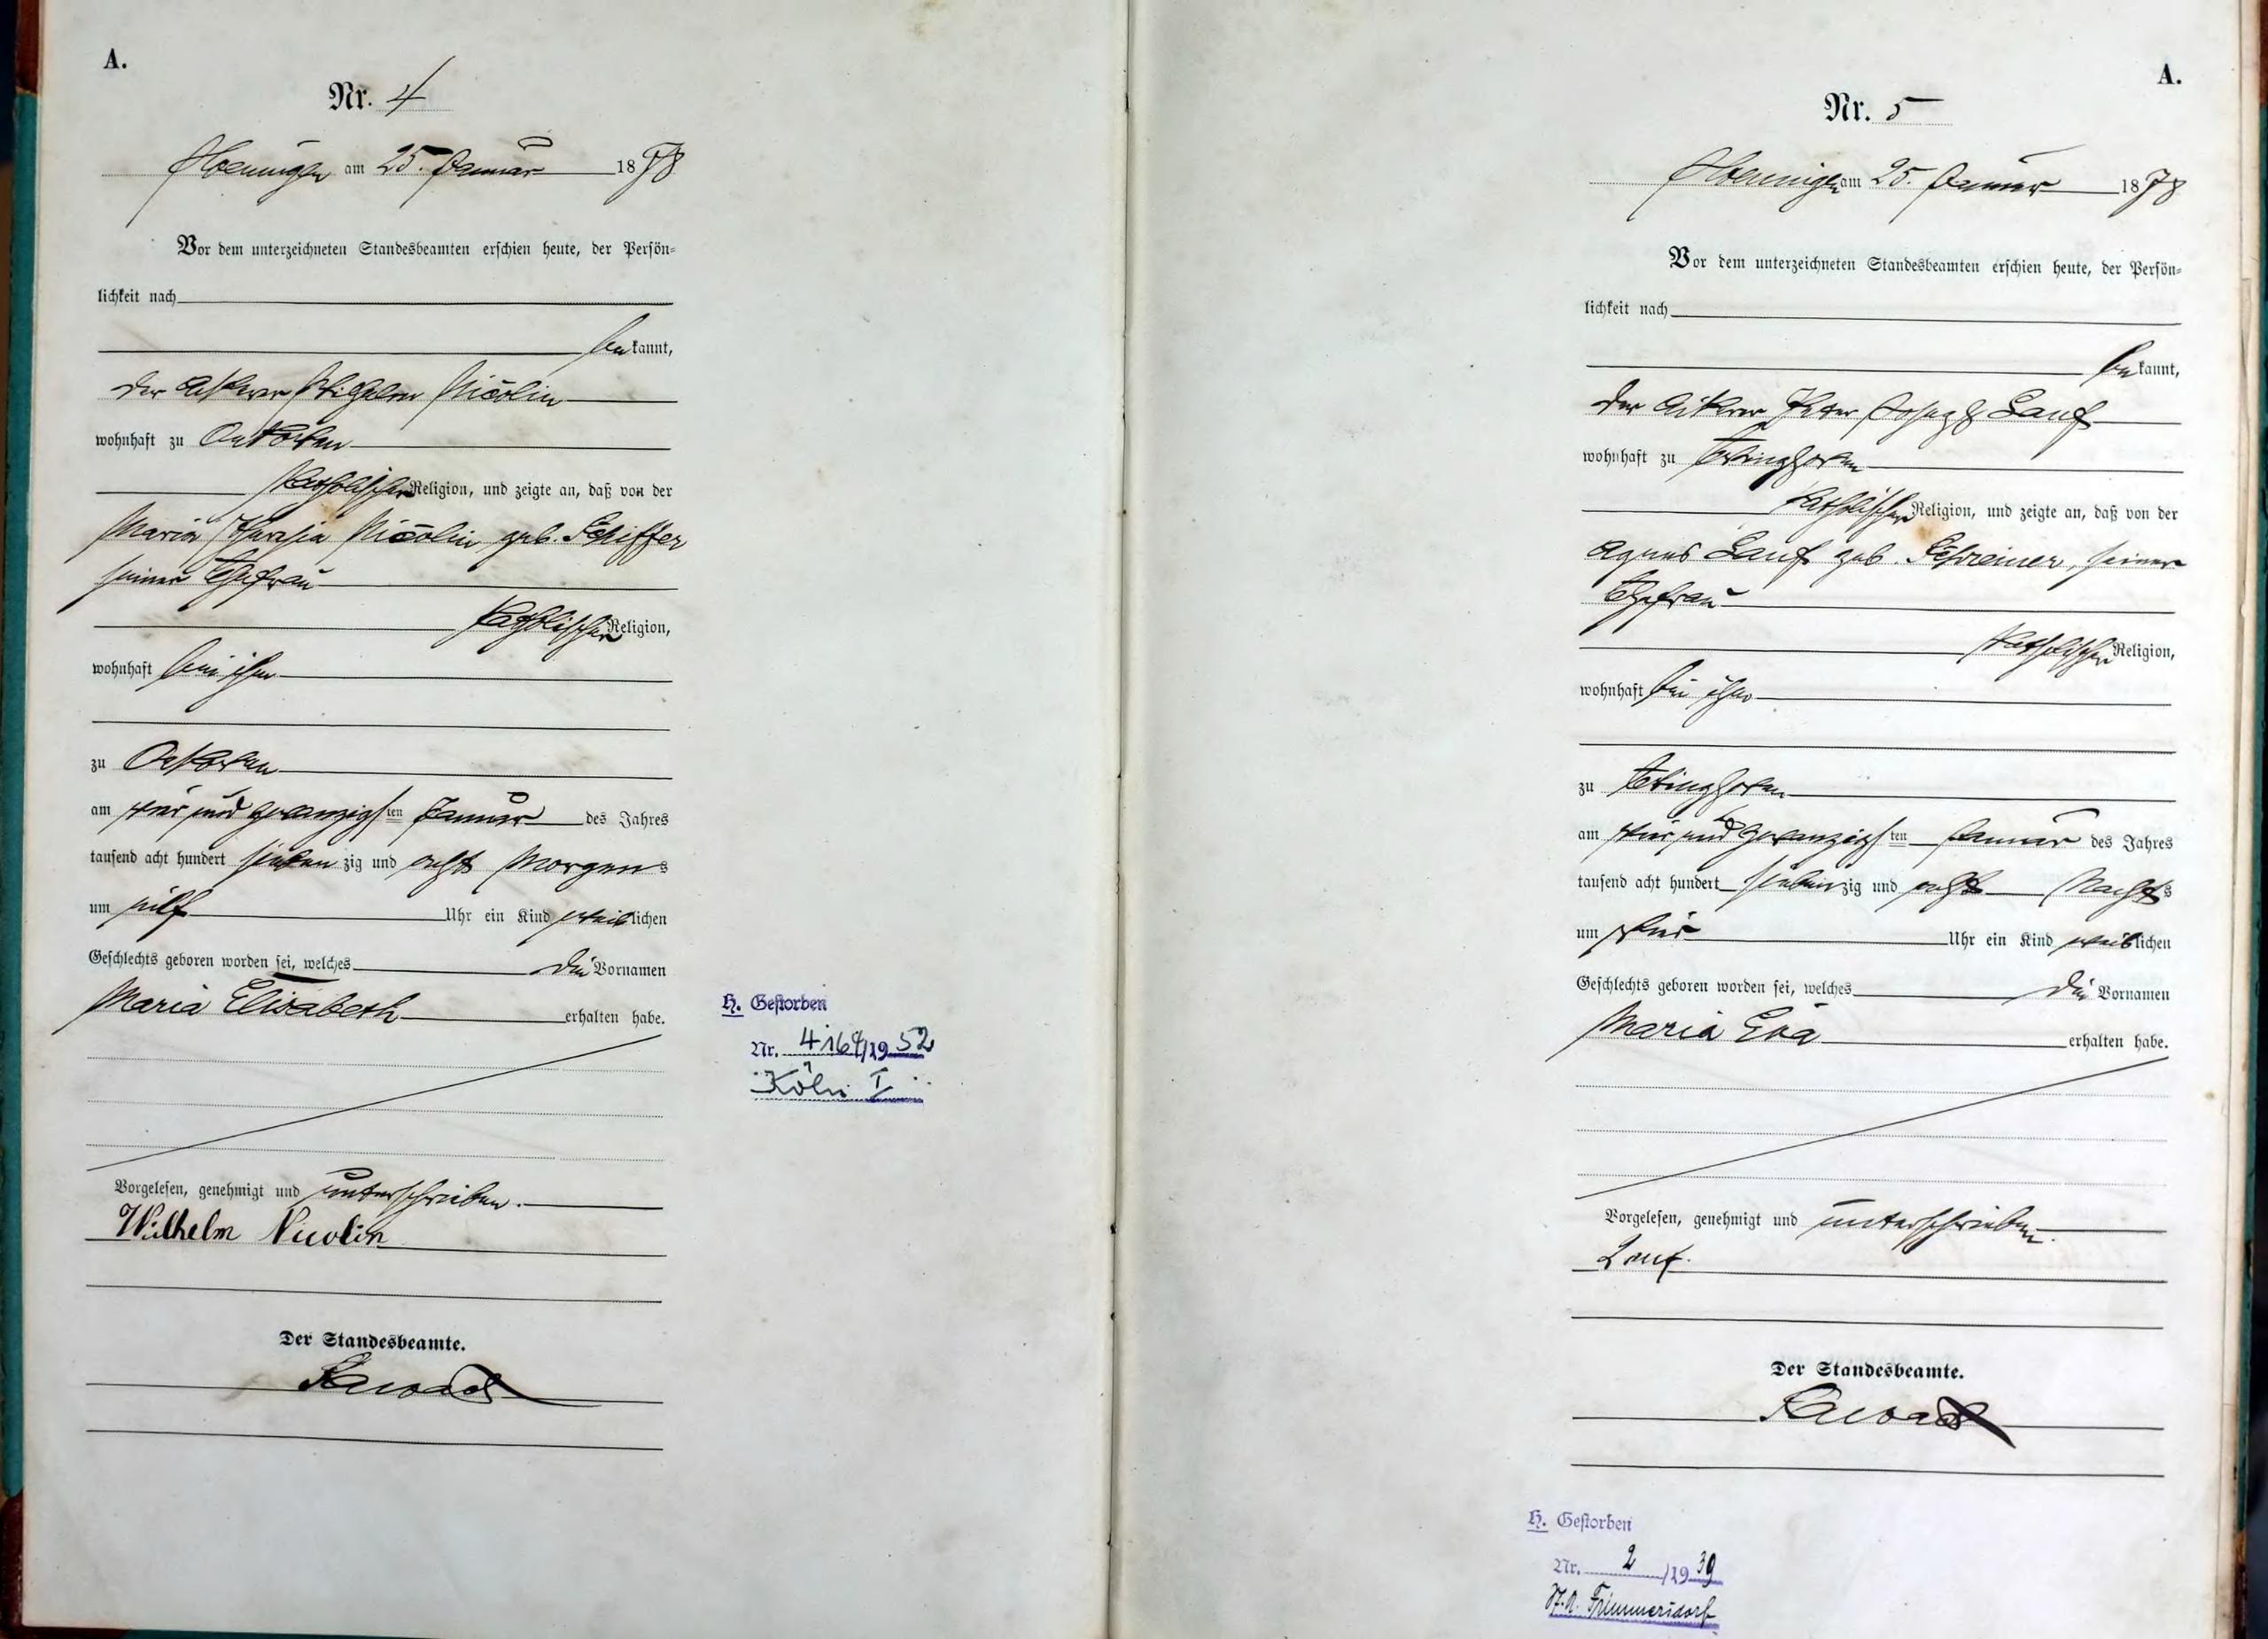 A.
Nr. 4
Hoeningen am 25. Januar 1878
Vor dem unterzeichneten Standesbeamten erschien heute, der Persön-
lichkeit nach
bekannt,
der Ackerer Wilhelm Nicolin
wohnhaft zu Oekoven
katholischer Religion, und zeigte an, daß von der
Maria Theresia Nicolin geb. Schiffer
seiner Ehefrau
katholischer Religion,
wohnhaft bei ihm
zu Oekoven
am vier und zwanzigsten Januar des Jahres
tausend acht hundert siebenzig und acht Morgens
um Uhr ein Kind weiblichen
Geschlechts geboren worden sei, welches die Vornamen
Maria Elisabeth erhalten habe.
Vorgelesen, genehmigt und unterschrieben.
Wilhelm Nicolin
Der Standesbeamte.
H. Gestorben
Nr. 4164/1952
Köln I
A.
Nr. 5
Hoeningen am 25. Januar 1878
Vor dem unterzeichneten Standesbeamten erschien heute, der Persön-
lichkeit nach
bekannt,
der Ackerer Peter Joseph Lauf
wohnhaft zu Evinghoven
katholischer Religion, und zeigte an, daß von der
Agnes Lauf geb. Schreiner, seiner
Ehefrau
katholischer Religion,
wohnhaft bei ihm
zu Evinghoven
am vier und zwanzigsten Januar des Jahres
tausend acht hundert siebenzig und acht Nachts
um vier Uhr ein Kind weiblichen
Geschlechts geboren worden sei, welches die Vornamen
Maria Eva erhalten habe.
Vorgelesen, genehmigt und unterschrieben.
Lauf.
Der Standesbeamte.
H. Gestorben
Nr. 2/1939
St.A. Frimmersdorf